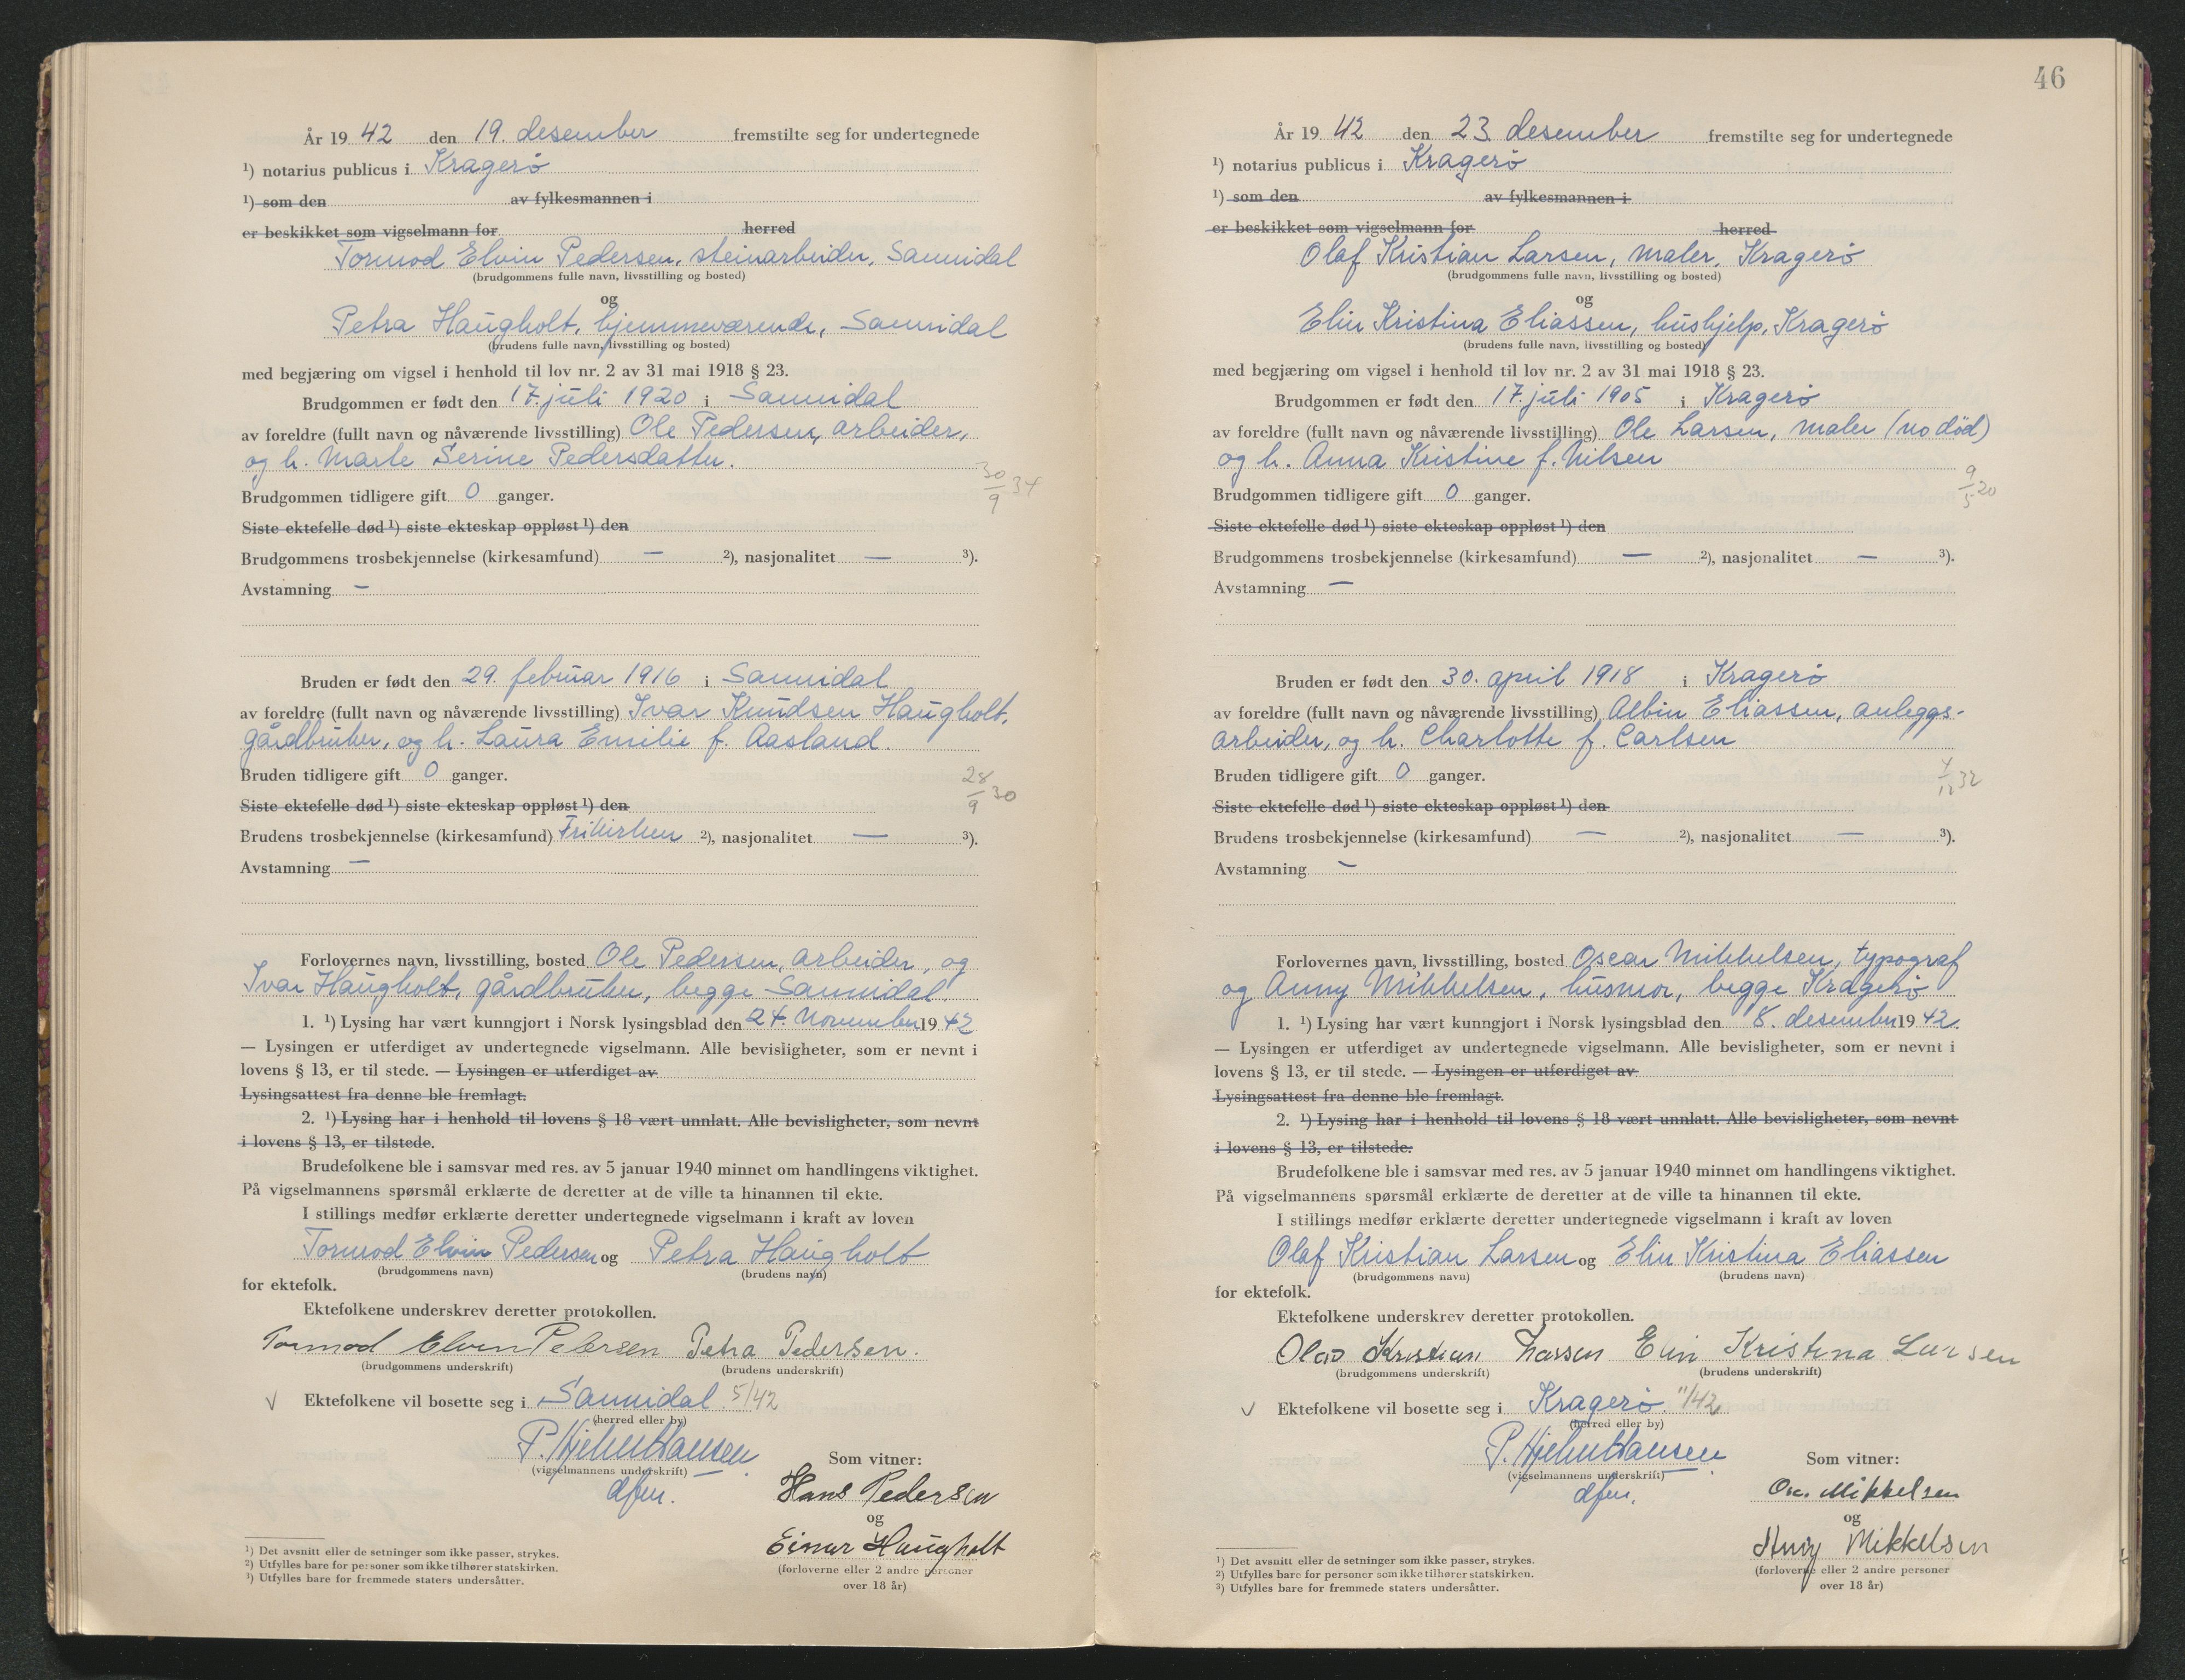 År 19 42 den 19. desember fremstilte seg for undertegnede
¹) notarius publicus i Kragerø
¹) som den av fylkesmannen i
er beskikket som vigselmann for herred
Tormod Elvin Pedersen, steinarbeider, Sannidal
(brudgommens fulle navn, livsstilling og bosted)
og
Petra Haugholt, hjemmeværende, Sannidal
(brudens fulle navn, livsstilling og bosted)
med begjæring om vigsel i henhold til lov nr. 2 av 31 mai 1918 § 23.
Brudgommen er født den 17. juli 1920 i Sannidal
av foreldre (fullt navn og nåværende livsstilling) Ole Pedersen, arbeider,
og h. Marte Serine Pedersdatter.
30/9 34
Brudgommen tidligere gift 0 ganger.
Siste ektefelle død ¹) siste ekteskap oppløst ¹) den
Brudgommens trosbekjennelse (kirkesamfund) — ²), nasjonalitet — ³).
Avstamning —
Bruden er født den 29. februar 1916 i Sannidal
av foreldre (fullt navn og nåværende livsstilling) Ivar Knudsen Haugholt,
gårdbruker, og h. Laura Emilie f. Aasland.
Bruden tidligere gift 0 ganger. 28/9 30
Siste ektefelle død ¹) siste ekteskap oppløst ¹) den
Brudens trosbekjennelse (kirkesamfund) Frikirken ²), nasjonalitet — ³).
Avstamning —
Forlovernes navn, livsstilling, bosted Ole Pedersen, arbeider, og
Ivar Haugholt, gårdbruker, begge Sannidal.
1. ¹) Lysing har vært kunngjort i Norsk lysingsblad den 24. November 19 42
— Lysingen er utferdiget av undertegnede vigselmann. Alle bevisligheter, som er nevnt i
lovens § 13, er til stede. — Lysingen er utferdiget av
Lysingsattest fra denne ble fremlagt.
2. ¹) Lysing har i henhold til lovens § 18 vært unnlatt. Alle bevisligheter, som nevnt
i lovens § 13, er tilstede.
Brudefolkene ble i samsvar med res. av 5 januar 1940 minnet om handlingens viktighet.
På vigselmannens spørsmål erklærte de deretter at de ville ta hinannen til ekte.
I stillings medfør erklærte deretter undertegnede vigselmann i kraft av loven
Tormod Elvin Pedersen og Petra Haugholt
(brudgommens navn) (brudens navn)
for ektefolk.
Ektefolkene underskrev deretter protokollen.
Tormod Elvin Pedersen Petra Pedersen.
(brudgommens underskrift) (brudens underskrift)
√ Ektefolkene vil bosette seg i Sannidal. 5/42
(herred eller by)
P. Hjelm Hansen
(vigselmannens underskrift)
dfm.
Som vitner:
Hans Pedersen
og
Einar Haugholt
(forloverne eller 2 andre personer
over 18 år)
¹) Det avsnitt eller de setninger som ikke passer, strykes.
²) Utfylles bare for personer som ikke tilhører statskirken.
³) Utfylles bare for fremmede staters undersåtter.
46
År 19 42 den 23. desember fremstilte seg for undertegnede
¹) notarius publicus i Kragerø
¹) som den av fylkesmannen i
er beskikket som vigselmann for herred
Olaf Kristian Larsen, maler, Kragerø
(brudgommens fulle navn, livsstilling og bosted)
og
Elin Kristina Eliassen, hushjelp, Kragerø
(brudens fulle navn, livsstilling og bosted)
med begjæring om vigsel i henhold til lov nr. 2 av 31 mai 1918 § 23.
Brudgommen er født den 17. juli 1905 i Kragerø
av foreldre (fullt navn og nåværende livsstilling) Ole Larsen, maler (no død)
og h. Anna Kristine f. Nilsen
9/5 20
Brudgommen tidligere gift 0 ganger.
Siste ektefelle død ¹) siste ekteskap oppløst ¹) den
Brudgommens trosbekjennelse (kirkesamfund) — ²), nasjonalitet — ³).
Avstamning —
Bruden er født den 30. april 1918 i Kragerø
av foreldre (fullt navn og nåværende livsstilling) Albin Eliassen, anleggs-
arbeider, og h. Charlotte f. Carlsen
Bruden tidligere gift 0 ganger. 4/12 32
Siste ektefelle død ¹) siste ekteskap oppløst ¹) den
Brudens trosbekjennelse (kirkesamfund) — ²), nasjonalitet — ³).
Avstamning —
Forlovernes navn, livsstilling, bosted Oscar Mikkelsen, typograf
og Anny Mikkelsen, husmor, begge Kragerø
1. ¹) Lysing har vært kunngjort i Norsk lysingsblad den 8. desember 19 42.
— Lysingen er utferdiget av undertegnede vigselmann. Alle bevisligheter, som er nevnt i
lovens § 13, er til stede. — Lysingen er utferdiget av
Lysingsattest fra denne ble fremlagt.
2. ¹) Lysing har i henhold til lovens § 18 vært unnlatt. Alle bevisligheter, som nevnt
i lovens § 13, er tilstede.
Brudefolkene ble i samsvar med res. av 5 januar 1940 minnet om handlingens viktighet.
På vigselmannens spørsmål erklærte de deretter at de ville ta hinannen til ekte.
I stillings medfør erklærte deretter undertegnede vigselmann i kraft av loven
Olaf Kristian Larsen og Elin Kristina Eliassen
(brudgommens navn) (brudens navn)
for ektefolk.
Ektefolkene underskrev deretter protokollen.
Olav Kristian Larsen Elin Kristina Larsen
(brudgommens underskrift) (brudens underskrift)
√ Ektefolkene vil bosette seg i Kragerø. 11/42
(herred eller by)
P. Hjelm Hansen
(vigselmannens underskrift)
dfm.
Som vitner:
Osc. Mikkelsen
og
Anny Mikkelsen
(forloverne eller 2 andre personer
over 18 år)
¹) Det avsnitt eller de setninger som ikke passer, strykes.
²) Utfylles bare for personer som ikke tilhører statskirken.
³) Utfylles bare for fremmede staters undersåtter.